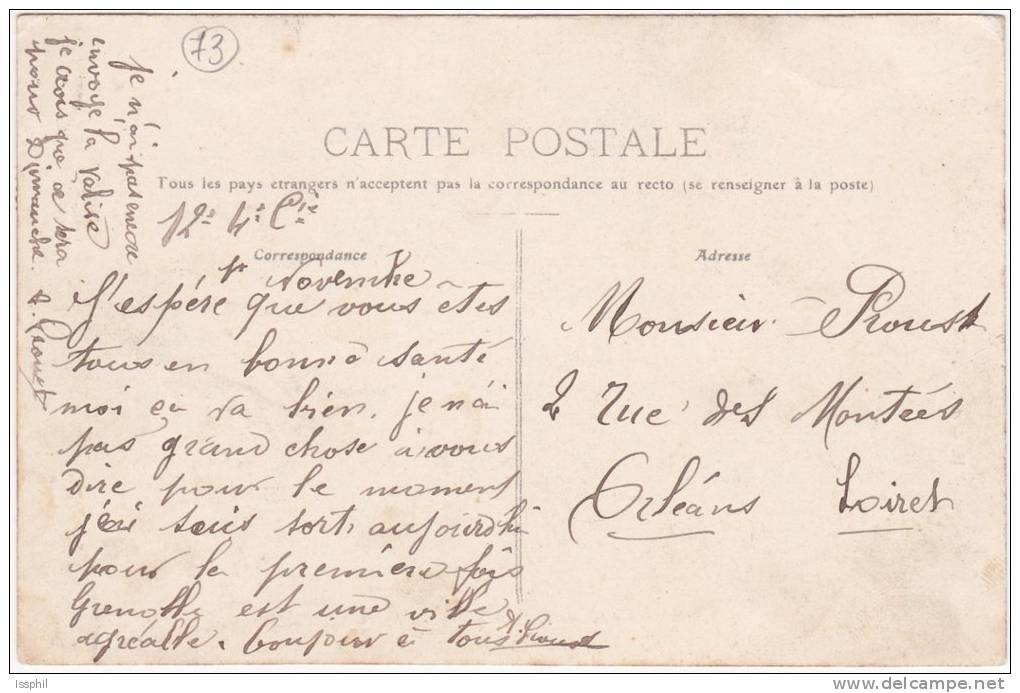 73
CARTE POSTALE
Tous les pays etrangers n'acceptent pas la correspondance au recto (se renseigner à la poste)
12e 4e Cie
Correspondance
1r Novembre
J'espére que vous êtes
tous en bonne santé
moi ça va bien. je n'ai
pas grand chose à vous
dire pour le moment
je suis sorti aujourd'hui
pour la première fois
Grenoble est une ville
agréable. bonjour à tous
A. Proust
je n'ai pas encore
envoyé la valise
je crois que ce sera
pour Dimanche. A. Proust
Adresse
Monsieur Proust
2 Rue des Montées
Orléans Loiret
Issphil
www.delcampe.net